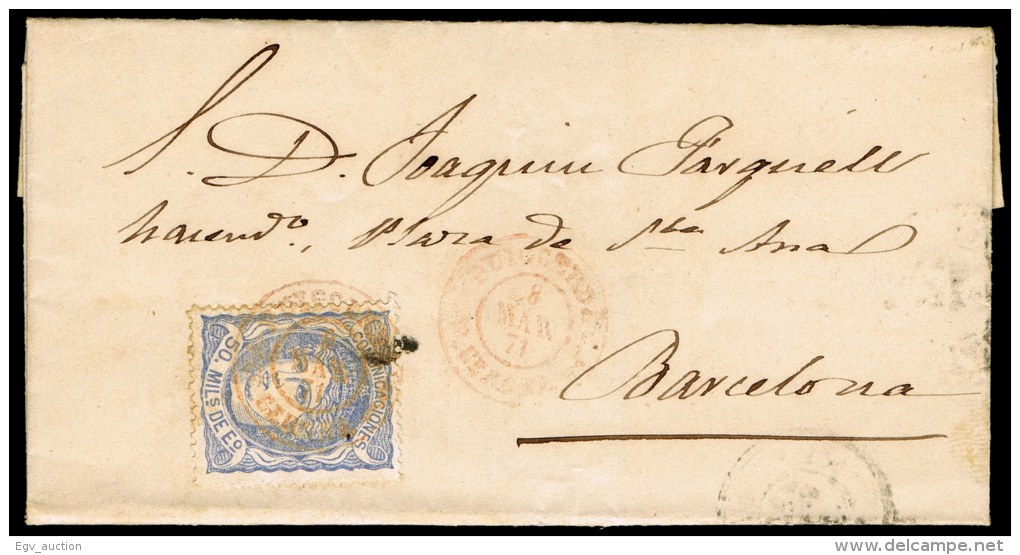 S. D. Joaquin Farguell
hacendo., Plaza de Sta Ana
PUIGCERDA
8
MAR
71
GERONA
Barcelona
COMUNICACIONES
50. MILS. DE EO.
Egv_auction
www.delcampe.net